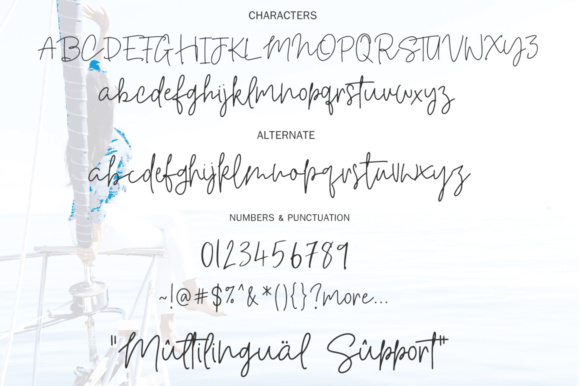 CHARACTERS
ABCDEFGHIJKLMNOPQRSTUVWXYZ
abcdefghijklmnopqrstuvwxyz
ALTERNATE
abcdefghijklmnopqrstuvwxyz
NUMBERS & PUNCTUATION
0123456789
~!@#$%^&*(){}?more...
"Mûltilinguäl Sûpport"